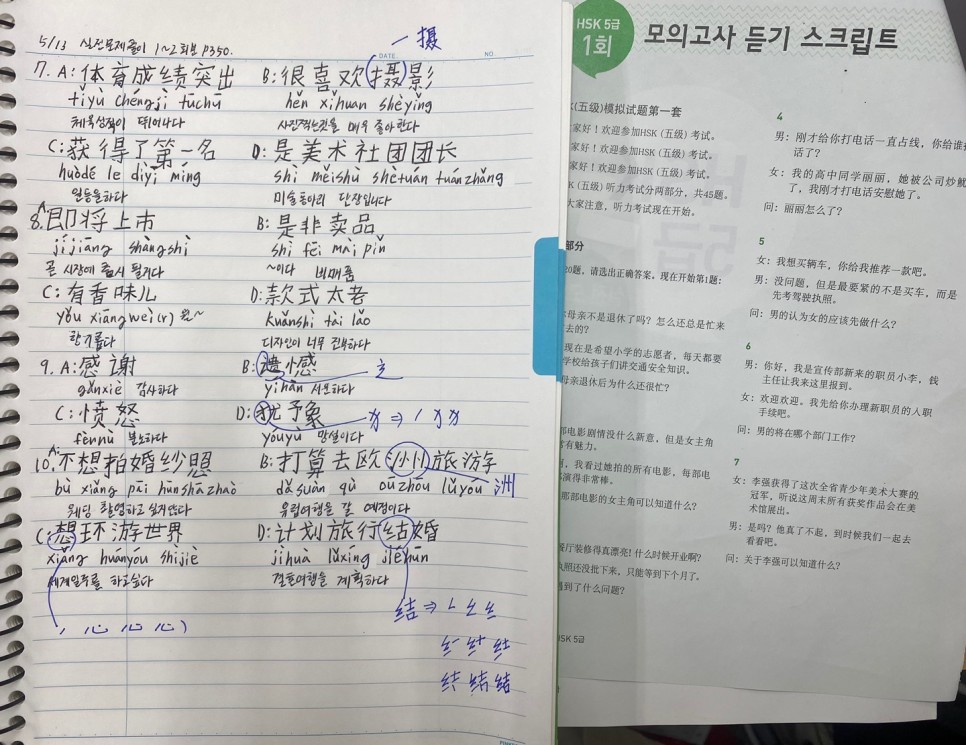 5/13 실전문제풀이 1~2회분 P350.
DATE
NO.
一 摄
7. A: 体育成绩突出 B: 很喜欢摄影
tǐyù chéngjì tūchū hěn xǐhuan shèyǐng
체육성적이 뛰어나다 사진찍는것을 매우 좋아한다
C: 获得了第一名 D: 是美术社团团长
huòdé le dìyī míng shì měishù shètuán tuánzhǎng
일등을하다 미술동아리 단장입니다
8. A 即将上市 B: 是非卖品
jíjiāng shàngshì shì fēi mài pǐn
곧 시장에 출시 될거다 ~이다 비매품
C: 有香味儿 D: 款式太老
yǒu xiāngwèi(r) kuǎnshì tài lǎo
향기롭다 디자인이 너무 진부하다
9. A: 感谢 B: 遗憾
gǎnxiè 감사하다 yíhàn
C: 愤怒 D: 犹予象
fènnù 분노하다 yóuyù 망설이다
10. A: 不想拍婚纱照 B: 打算去欧洲旅游
bù xiǎng pāi hūnshāzhào dǎsuàn qù ōuzhōu lǚyóu 洲
웨딩 촬영하고 싶지않다 유럽여행을 갈 예정이다
C: 想环游世界 D: 计划旅行结婚
xiǎng huányóu shìjiè jìhuà lǚxíng jiéhūn
세계일주를 하고싶다 결혼여행을 계획하다
结 ⇒
结 结
HSK 5급
1회
모의고사 듣기 스크립트
(五级)模拟试题第一套
家好！欢迎参加HSK（五级）考试。
家好！欢迎参加HSK（五级）考试。
家好！欢迎参加HSK（五级）考试。
（五级）听力考试分两部分，共45题。
大家注意，听力考试现在开始。
部分
20题，请选出正确答案。现在开始第1题：
母亲不是退休了吗？怎么还总是忙来
去的？
现在是希望小学的志愿者，每天都要
学校给孩子们讲交通安全知识。
母亲退休后为什么还很忙？
部电影剧情没什么新意，但是女主角
有魅力。
，我看过她拍的所有电影，每部电
演得非常棒。
那部电影的女主角可以知道什么？
餐厅装修得真漂亮！什么时候开业啊？
执照还没批下来，只能等到下个月了。
遇到了什么问题？
HSK 5급
4
男：刚才给你打电话一直占线，你给谁
话了？
女：我的高中同学丽丽，她被公司炒
了，我刚才打电话安慰她了。
问：丽丽怎么了？
5
女：我想买辆车，你给我推荐一款吧。
男：没问题，但是最要紧的不是买车，而是
先考驾驶执照。
问：男的认为女的应该先做什么？
6
男：你好，我是宣传部新来的职员小李，钱
主任让我来这里报到。
女：欢迎欢迎。我先给你办理新职员的入职
手续吧。
问：男的将在哪个部门工作？
7
女：李强获得了这次全省青少年美术大赛的
冠军。听说这周末所有获奖作品会在美
术馆展出。
男：是吗？他真了不起，到时候我们一起去
看看吧。
问：关于李强可以知道什么？